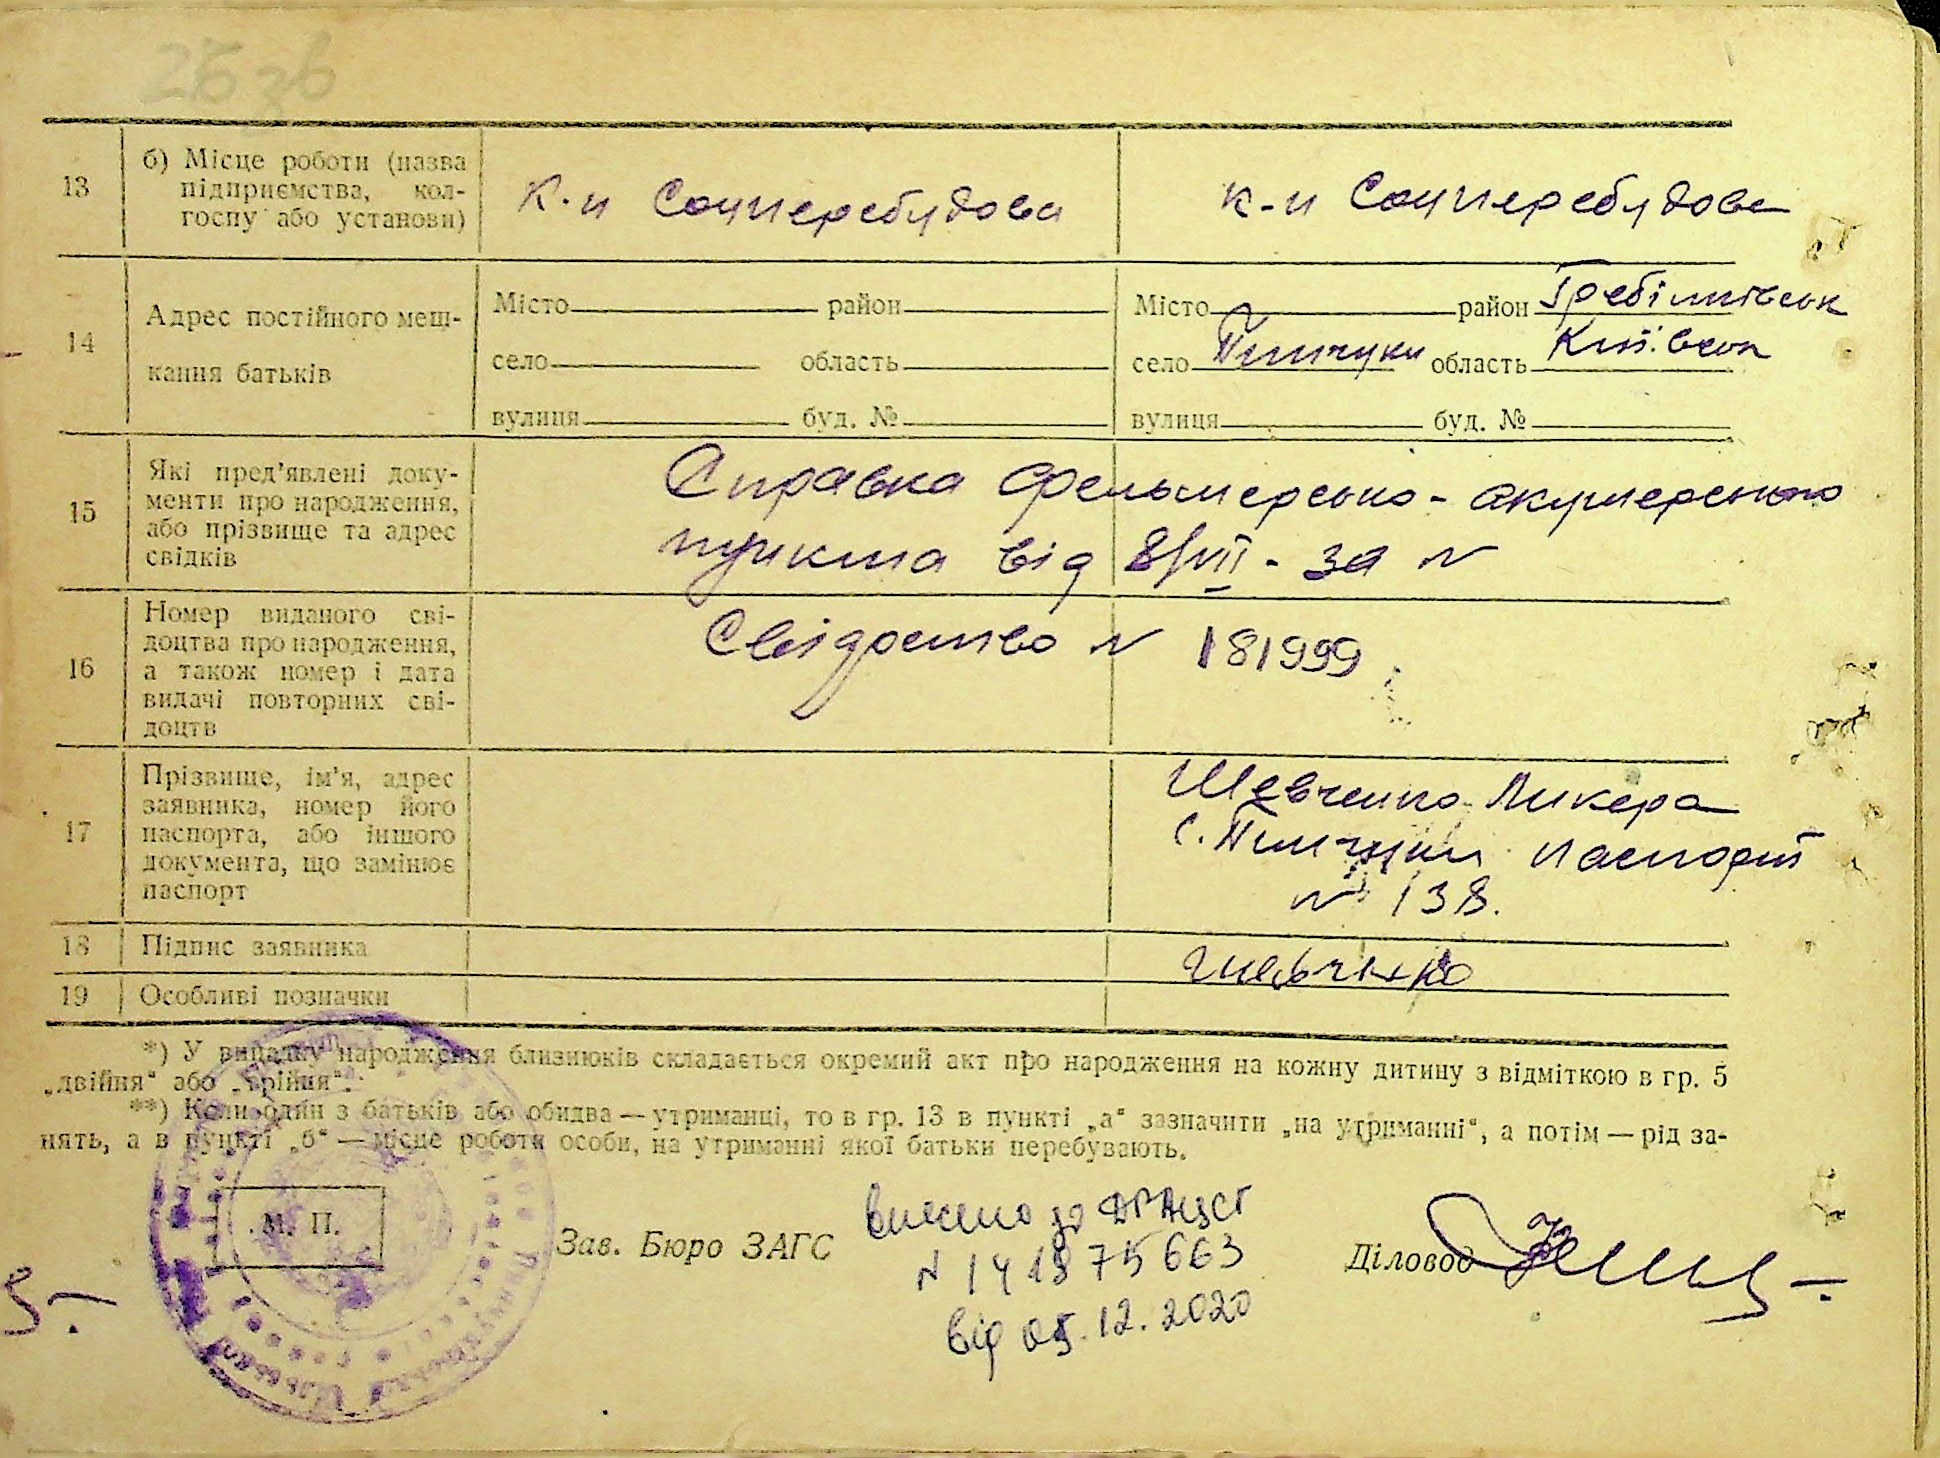 25 зв
13 б) Місце роботи (назва підприємства, кол-госпу або установи) К-п Соцперебудова к-п Соцперебудова
14 Адрес постійного меш-кання батьків
Місто район Місто район Гребінківськ
село область село Пінчуки область Київськ
вулиця буд. № вулиця буд. №
15 Які пред'явлені доку-менти про народження, або прізвище та адрес свідків
Справка Фельшерсько-акушерського
пункта від 8/VII - 39 N
16 Номер виданого сві-доцтва про народження, а також номер і дата видачі повторних сві-доцтв
Свідоцтво N 181999
17 Прізвище, ім'я, адрес заявника, номер його паспорта, або іншого документа, що замінює паспорт
Шевченко Ликера
с. Пінчуки паспорт
N 138.
18 Підпис заявника Шевченко
19 Особливі позначки
*) У випадку народження близнюків складається окремий акт про народження на кожну дитину з відміткою в гр. 5
„двійня“ або „трійня“.
**) Коли один з батьків або обидва — утриманці, то в гр. 13 в пункті „а“ зазначити „на утриманні“, а потім — рід за-
нять, а в пункті „б“ — місце роботи особи, на утриманні якої батьки перебувають.
М. П.
Зав. Бюро ЗАГС
Внесено до ДРАЦСГ
N 141875663
від 05.12.2020
Діловод